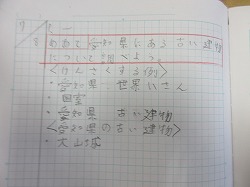 8 めあて 愛知県にある古い建物
について調べよう。
<けんさくする例>
・愛知県 世界いさん
・国宝
・愛知県 古い建物
<愛知県の古い建物>
・犬山城